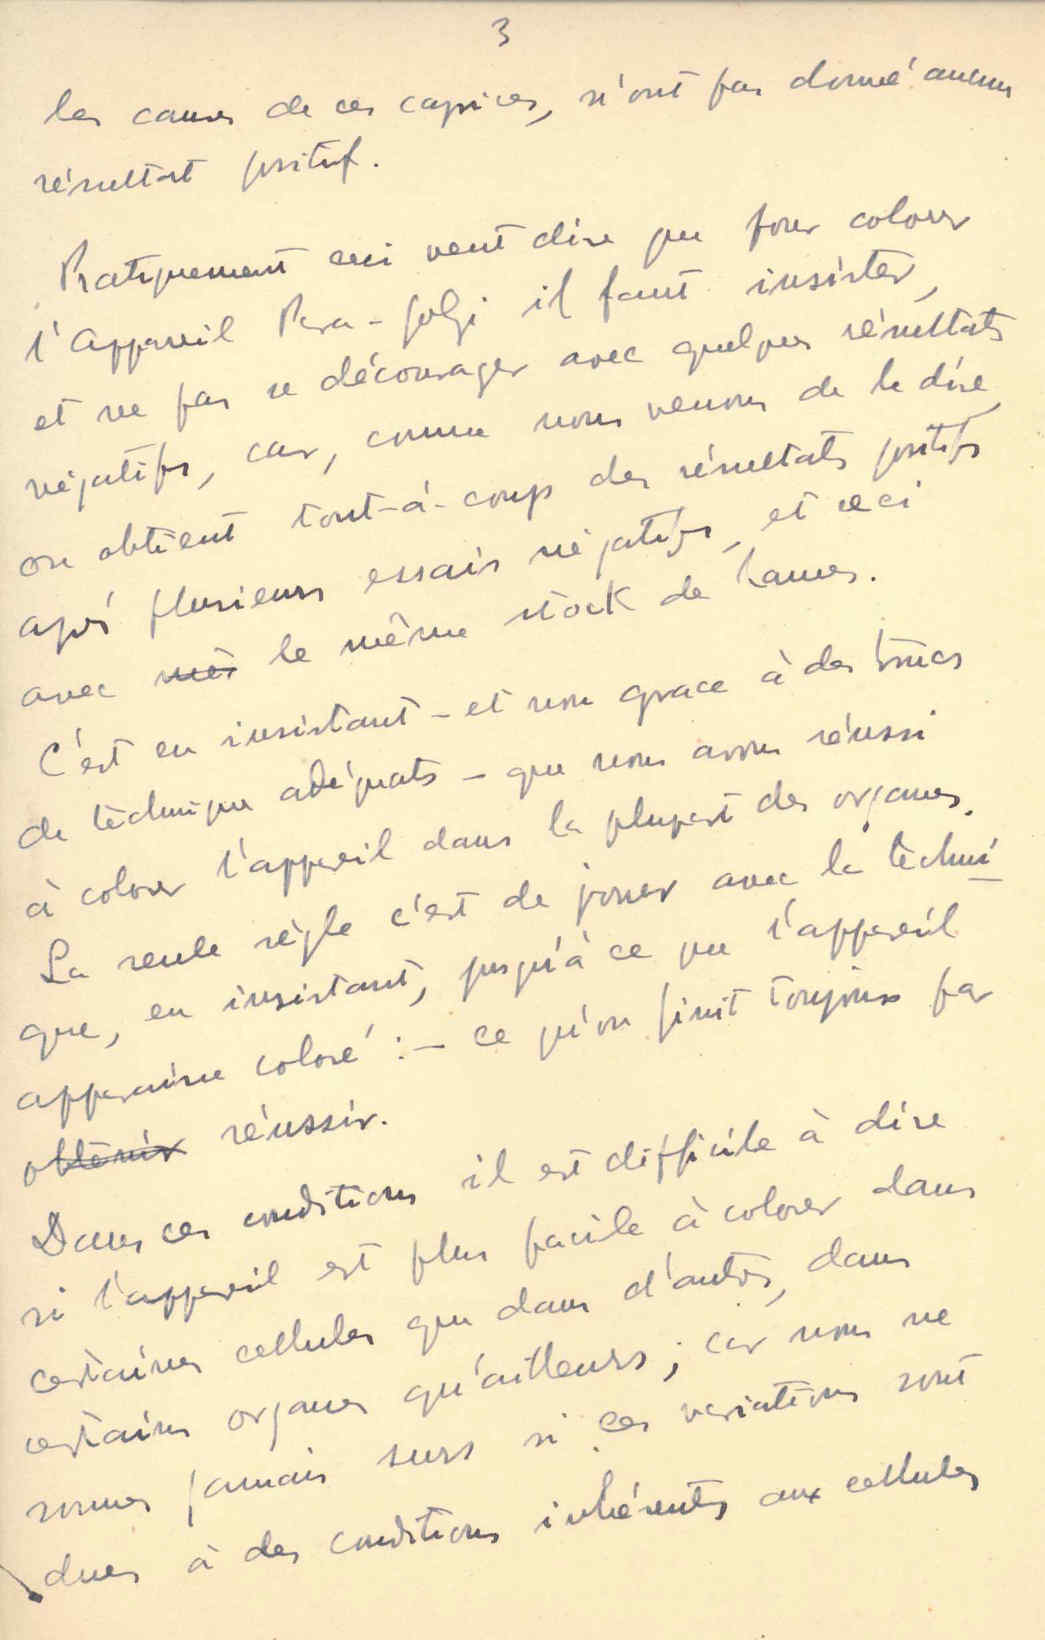 3
les causes de ces caprices, n'ont pas donné aucun
résultat positif.
Pratiquement ceci veut dire que pour colorer
l'appareil Para-Golgi il faut insister,
et ne pas se décourager avec quelques résultats
négatifs, car, comme nous venons de le dire,
on obtient tout-à-coup des résultats positifs
après plusieurs essais négatifs, et ceci
avec mês le même stock de lames.
C'est en insistant - et non grace à des trucs
de téchnique adéquats - que nous avons réussi
à colorer l'appareil dans la plupart des organes.
La seule règle c'est de jouer avec la téchni
que, en insistant, jusqu'à ce que l'appareil
apparaisse coloré : - ce qu'on finit toujours par
obtenir réussir.
Dans ces conditions il est difficile à dire
si l'appareil est plus facile à colorer dans
certaines cellules que dans d'autres, dans
certains organes qu'ailleurs ; car nous ne
sommes jamais surs si ces variations sont
dues à des conditions inhérentes aux cellules